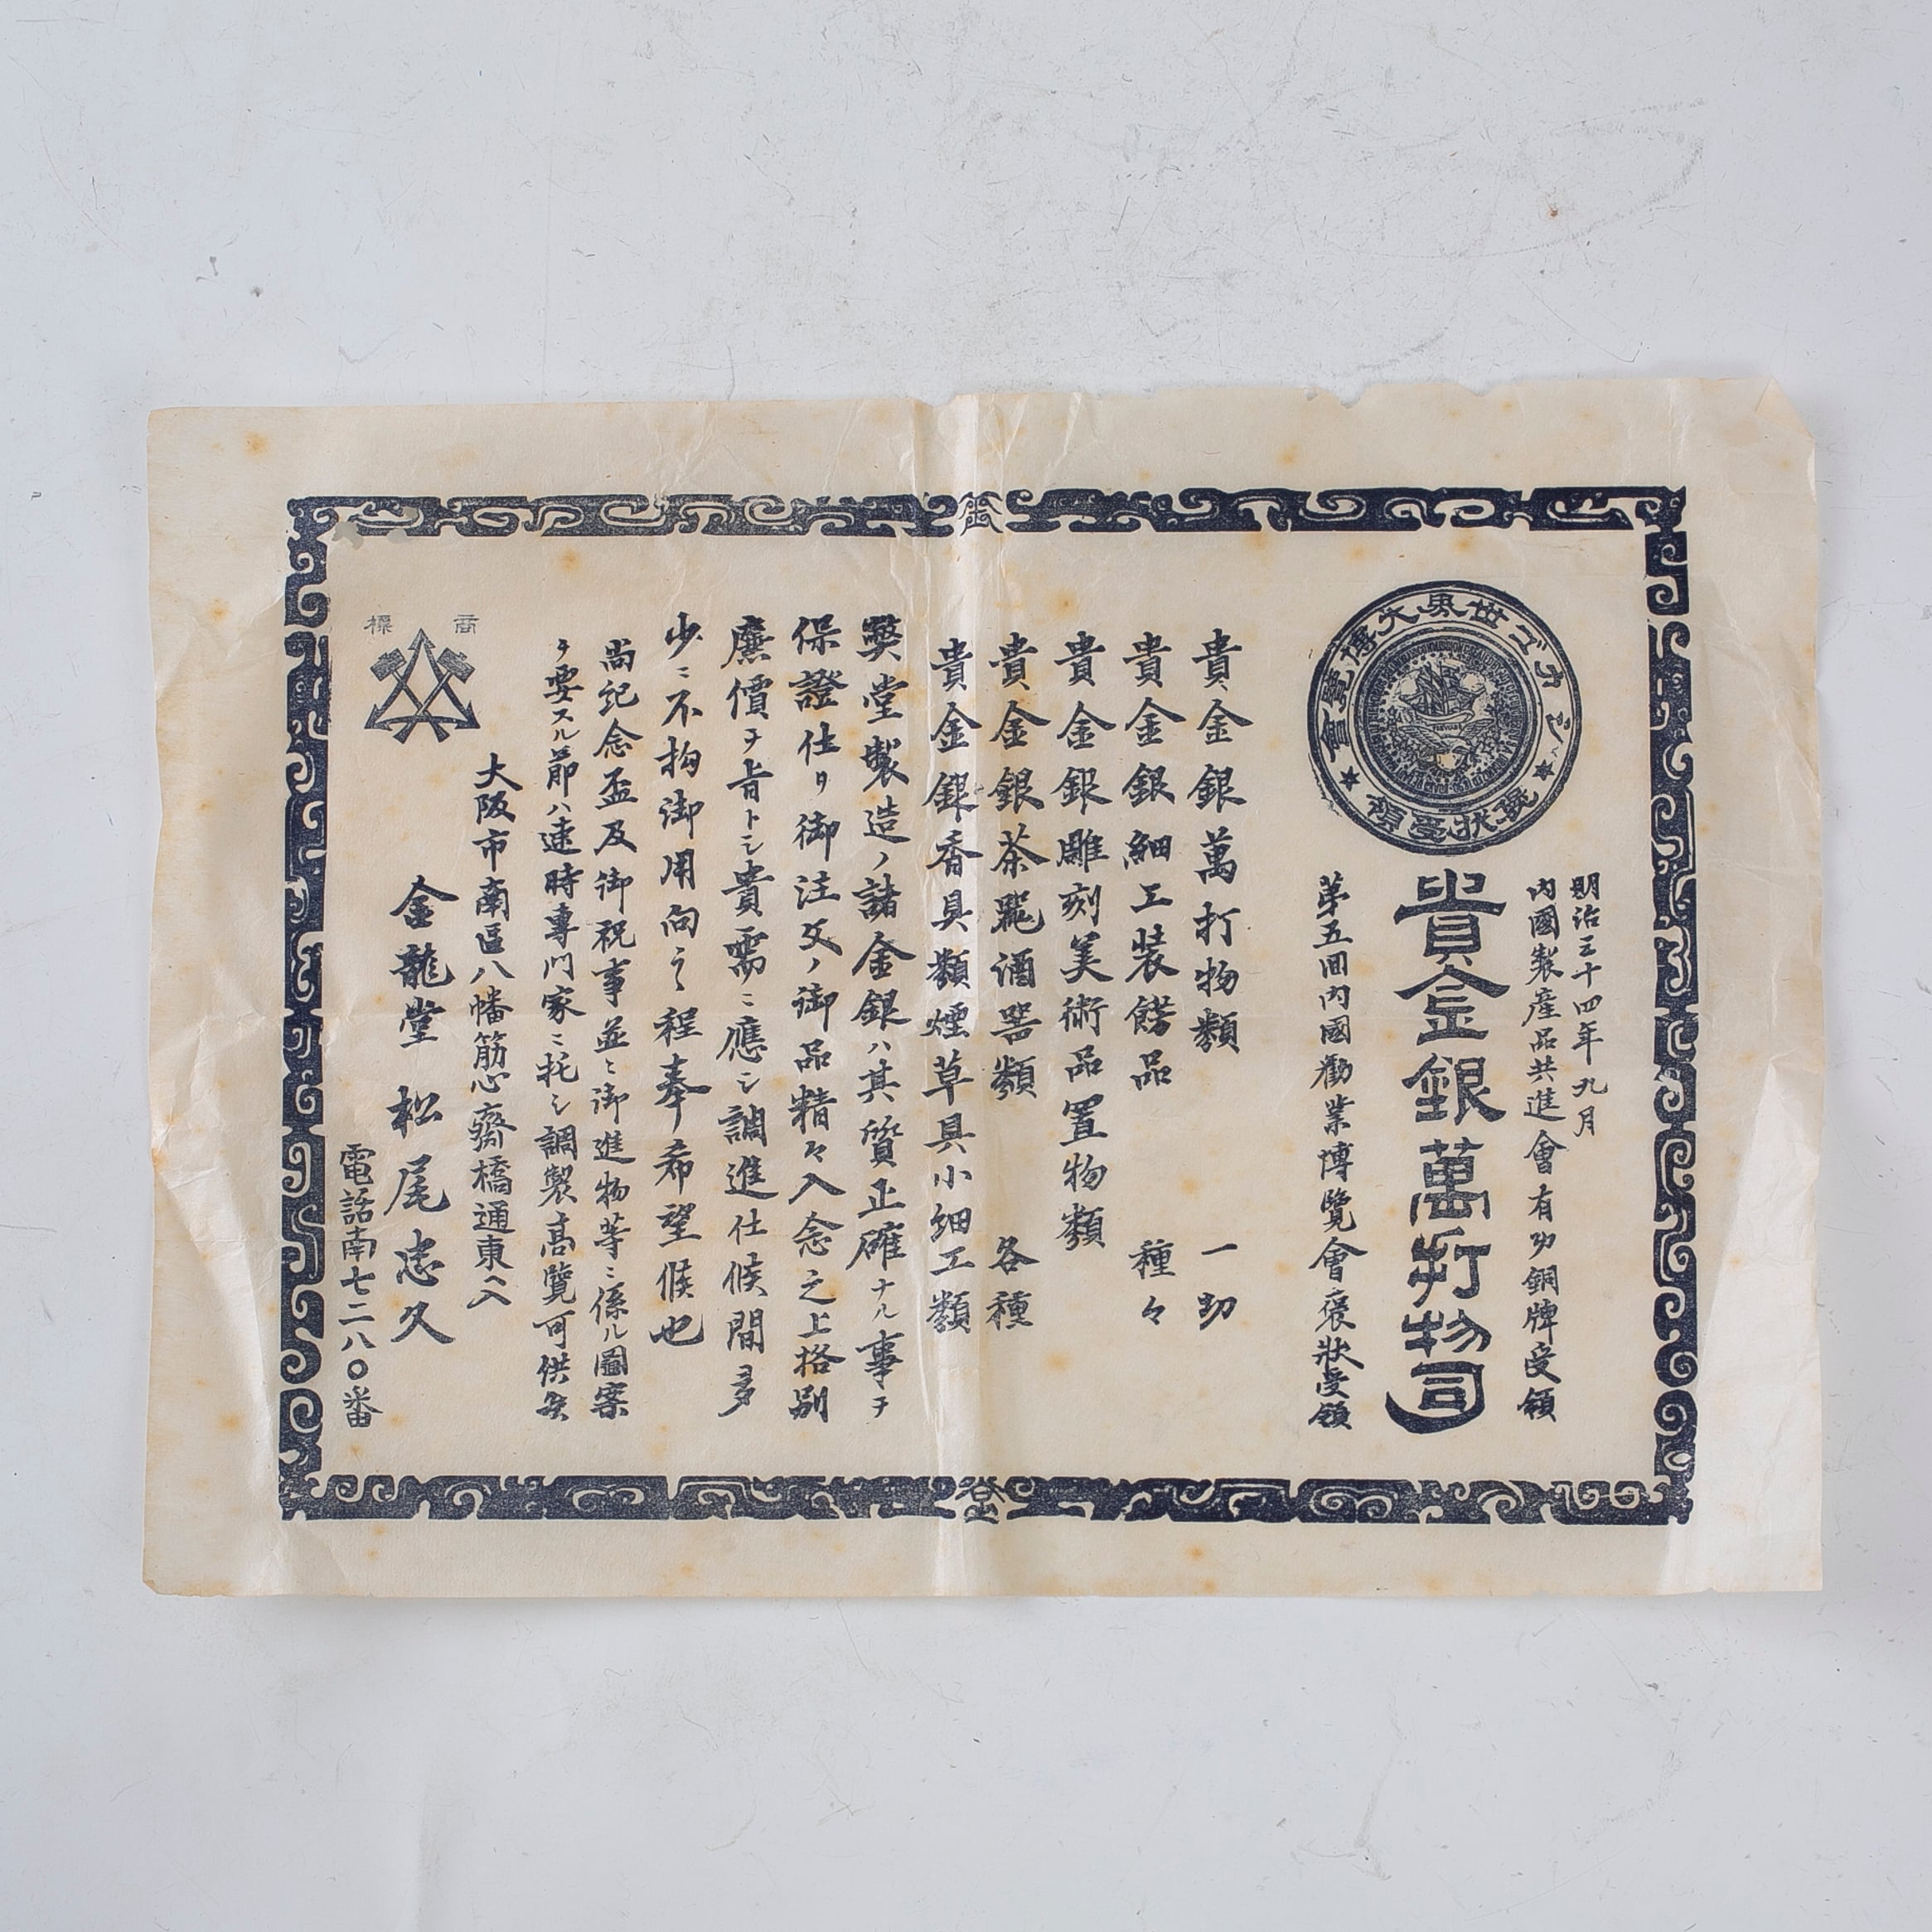 シカゴ世界大博覽會
褒狀受領
明治三十四年九月
内國製産品共進會有功銅牌受領
貴金銀萬打物司
第五回内國勸業博覽會褒狀受領
貴金銀萬打物類 一切
貴金銀細工裝餝品 種々
貴金銀雕刻美術品置物類
貴金銀茶瓶酒器類 各種
貴金銀香具類煙草具小細工類
弊堂製造ノ諸金銀ハ其質正確ナル事ヲ
保證仕リ御注文ノ御品精々入念之上格別
廉價ヲ旨トシ貴需ニ應シ調進仕候間多
少ニ不拘御用向之程奉希望候也
尚記念盃及御祝事並ニ御進物等ニ係ル圖案
ヲ要スル節ハ速時專門家ニ托シ調製高覽可供候
大阪市南區八幡筋心齋橋通東ヘ入
金龍堂 松尾忠久
電話南七二八〇番
商標